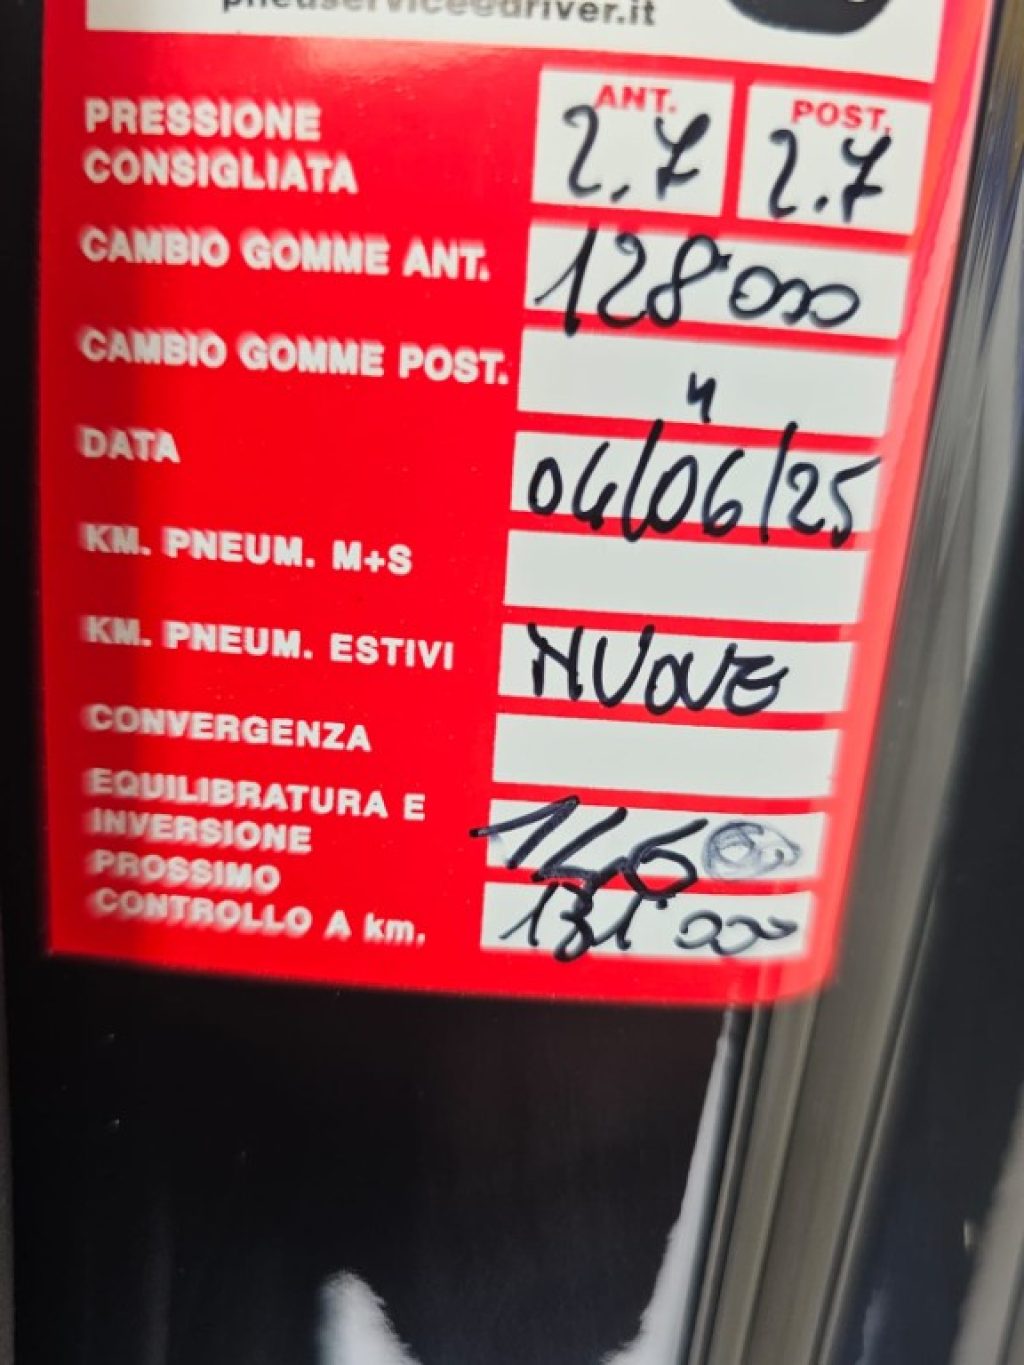 pneuservice@driver.it
ANT. POST.
PRESSIONE CONSIGLIATA 2.7 2.7
CAMBIO GOMME ANT. 128'000
CAMBIO GOMME POST. "
DATA 04/06/25
KM. PNEUM. M+S
KM. PNEUM. ESTIVI NUOVE
CONVERGENZA
EQUILIBRATURA E
INVERSIONE
PROSSIMO
CONTROLLO A km. 131'000